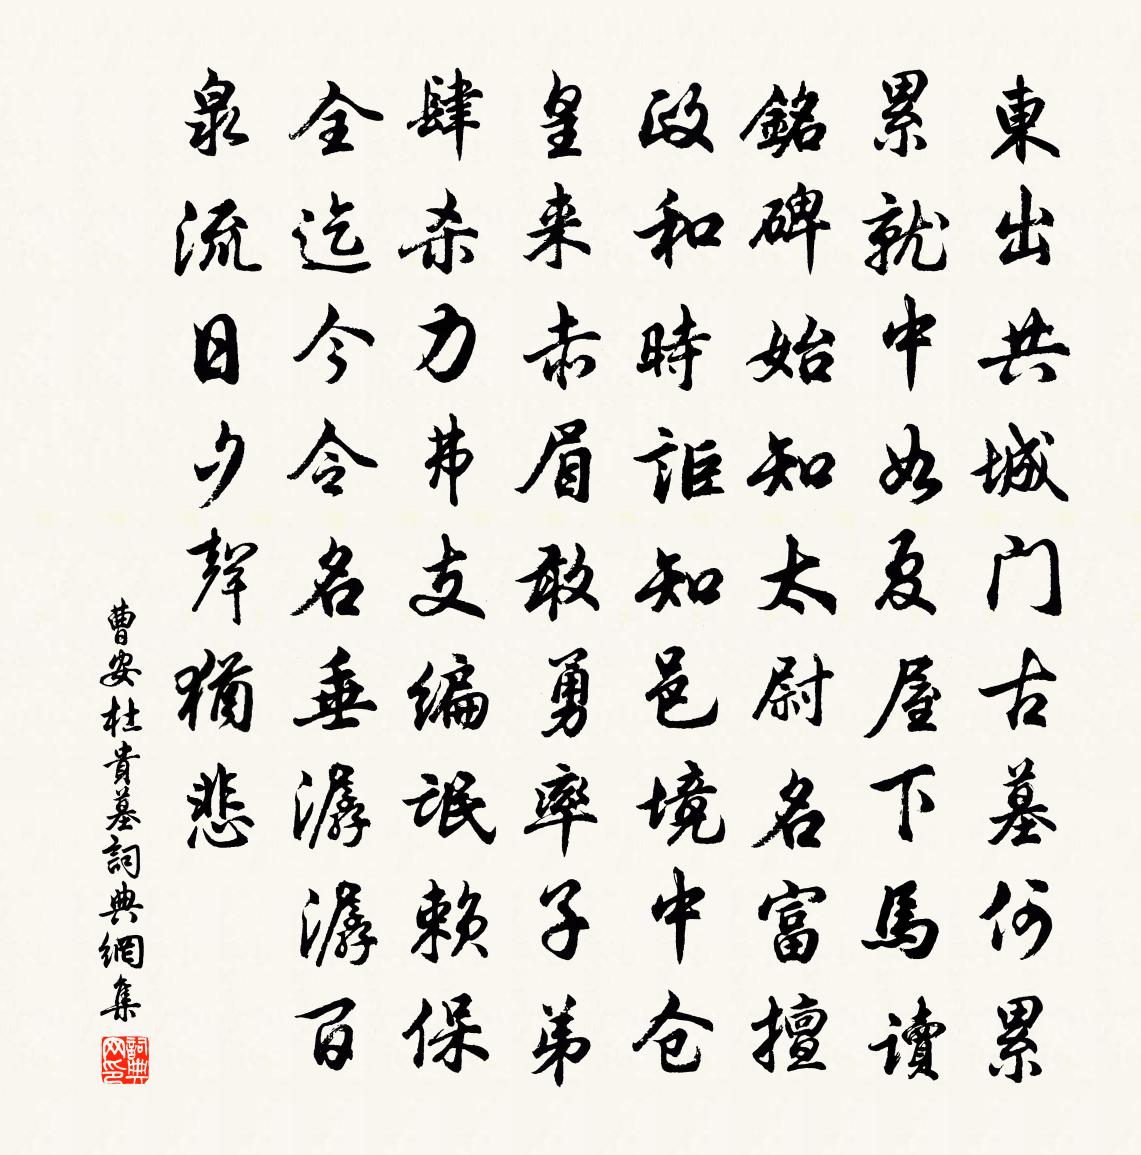 東出共城门古墓何累
累就中如夏屋下馬讀
銘碑始知太尉名富擅
政和時詎知邑境中仓
皇来赤眉敢勇率子弟
肆杀力弗支编氓赖保
全迄今令名垂潺潺百
泉流日夕聲猶悲
曹安杜貴墓詞典網集
詞典网印